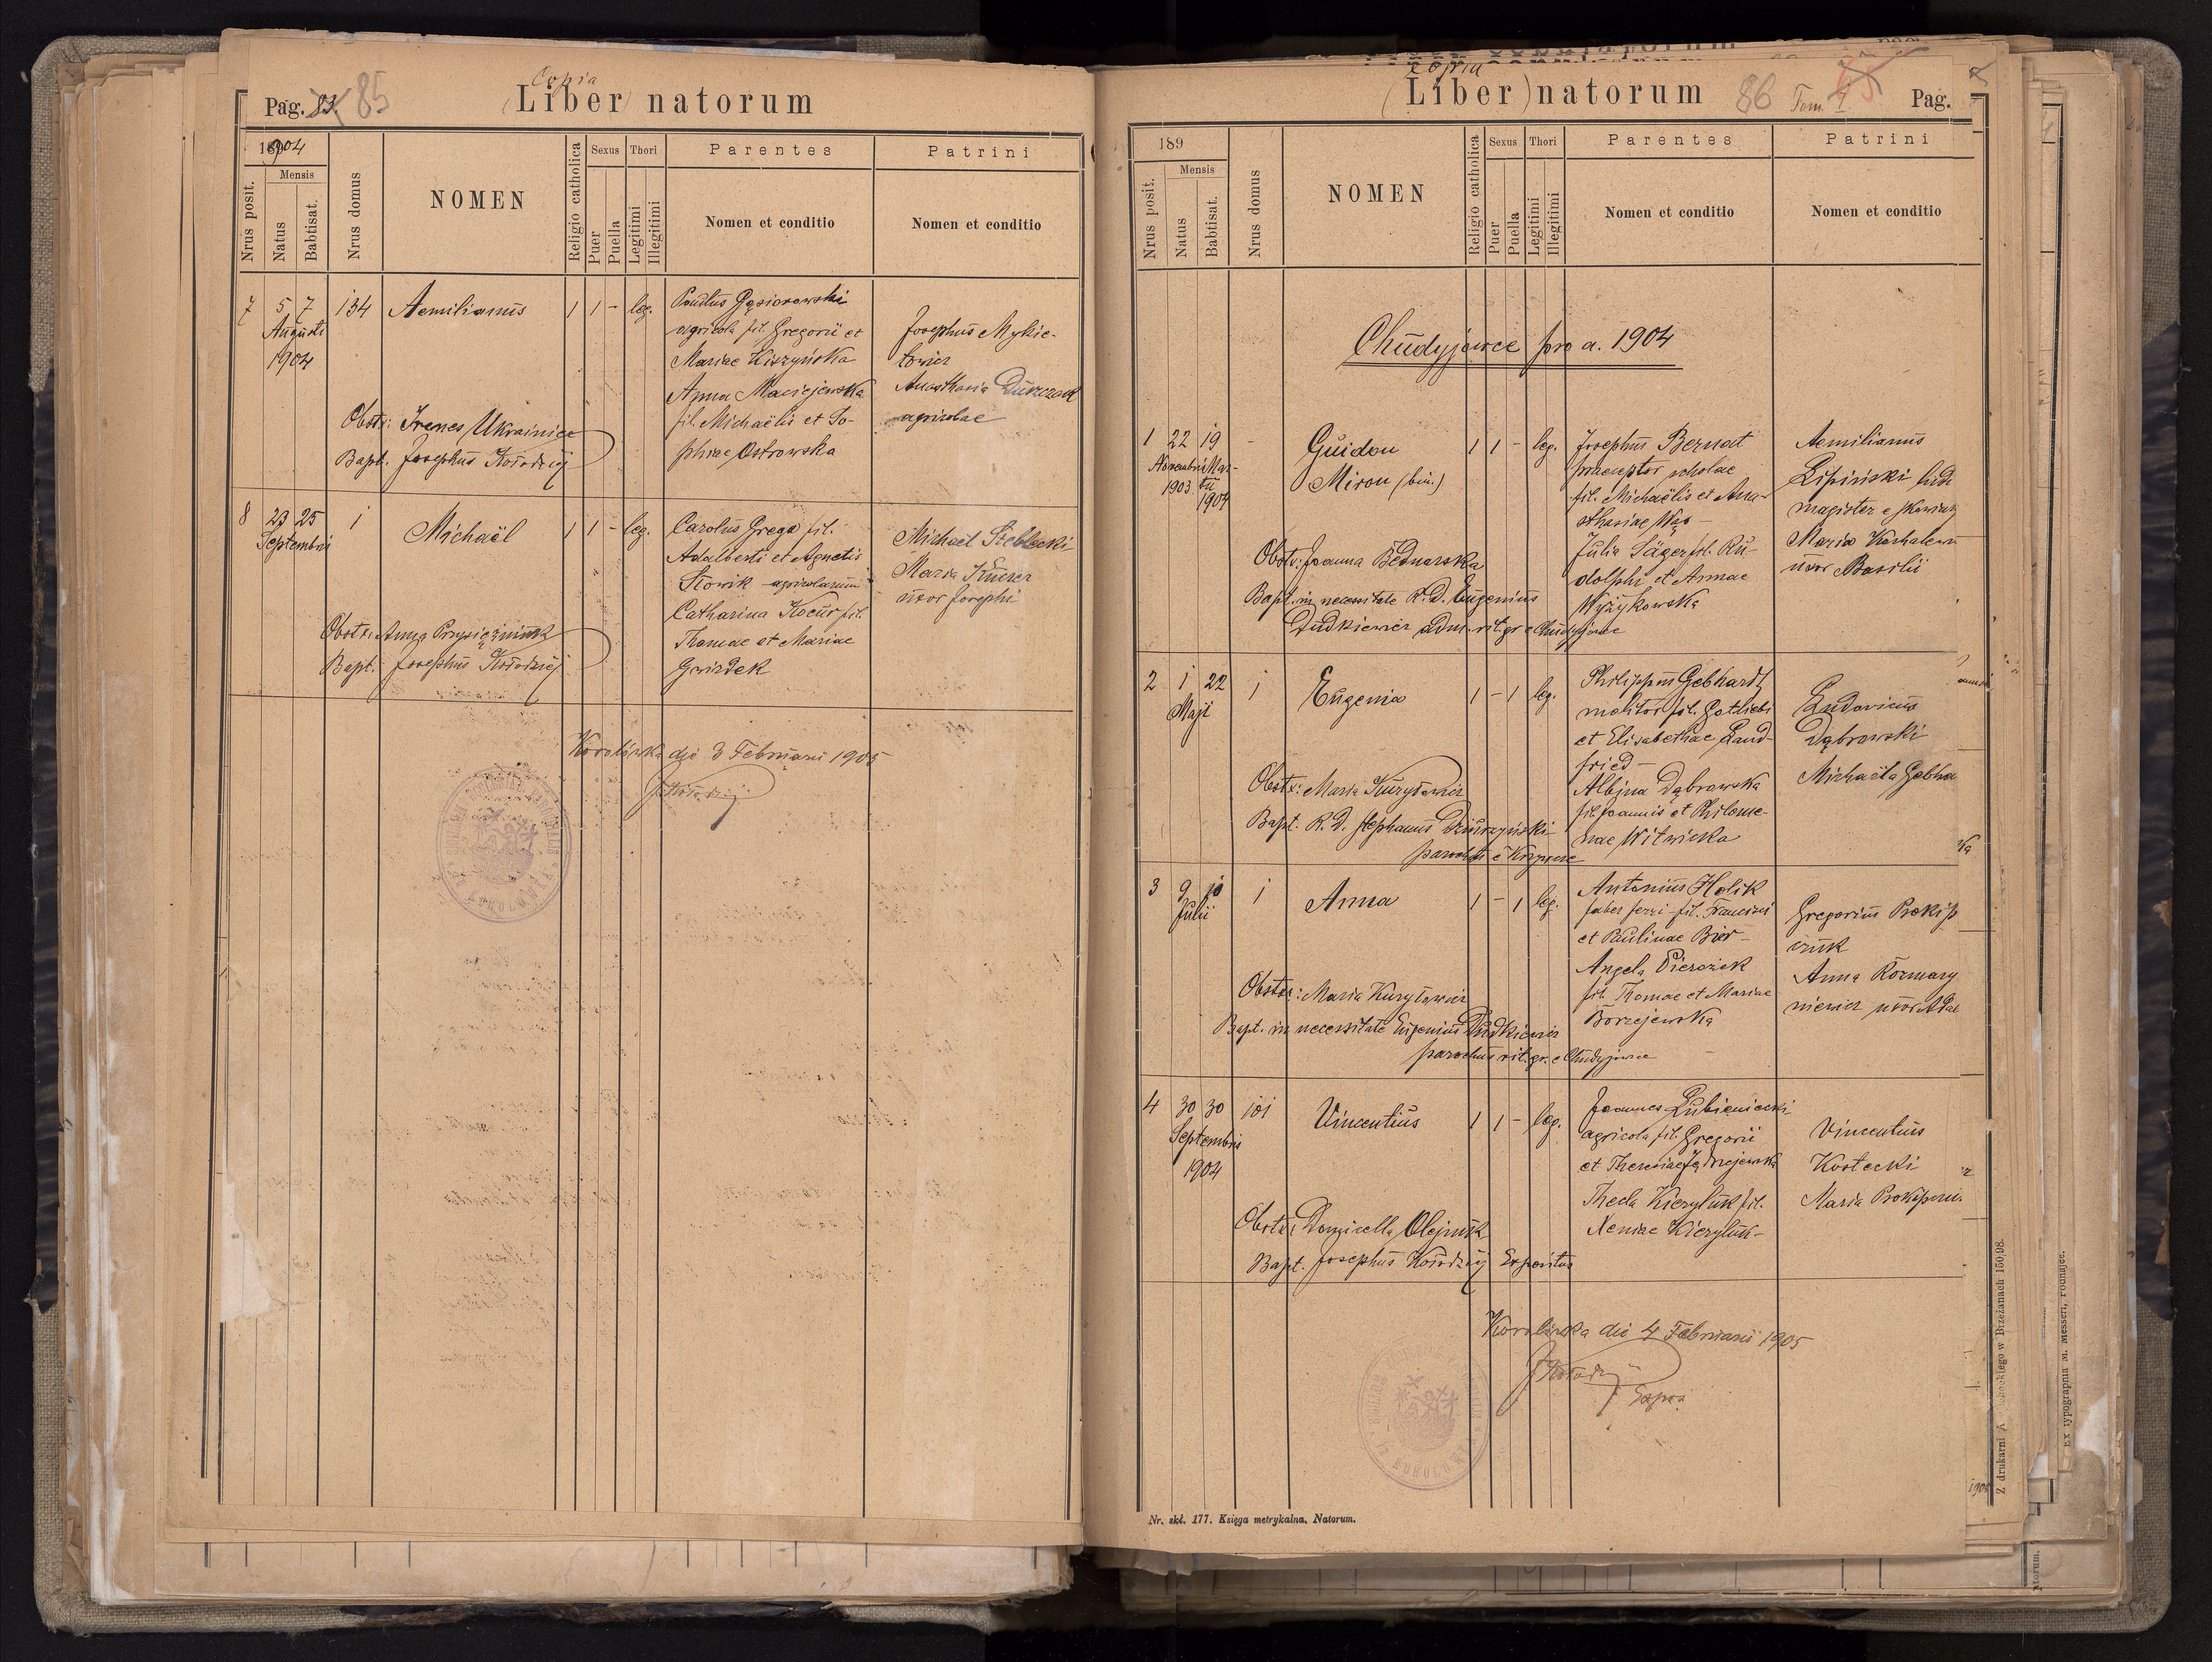 Pag. 83 85
Copia
Liber natorum
1904
Mensis
Nrus posit.
Natus
Babtisat.
Nrus domus
NOMEN
Religio catholica
Sexus
Puer
Puella
Thori
Legitimi
Illegitimi
Parentes
Nomen et conditio
Patrini
Nomen et conditio
7 5 7 134 Aemilianus 1 1 - leg.
Augusti
1904
Paulus Gąsiorowski
agricola fil. Gregorii et
Mariae Kiszyńska
Anna Maciejewska
fil. Michaëlis et So-
phiae Ostrowska
Josephus Mykie-
towicz
Anasthasia Duszczak
agricolae
Obstx: Irenes Ukrainiec
Bapt. Josephus Kołodziej
8 23 25 1 Michaël 1 1 - leg.
Septembris
Carolus Grega fil.
Adalberti et Agnetis
Słowik agricolarum
Catharina Kocur fil.
Thomae et Mariae
Gwizdek
Michaël Steblecki
Maria
uxor Josephi
Obstx: Anna
Bapt. Josephus Kołodziej
Korolówka die 3 Februarii 1905
J Kołodziej
Copia
Liber natorum 86 Tom. Pag.
189
Mensis
Nrus posit.
Natus
Babtisat.
Nrus domus
NOMEN
Religio catholica
Sexus
Puer
Puella
Thori
Legitimi
Illegitimi
Parentes
Nomen et conditio
Patrini
Nomen et conditio
Chudyjowce pro a. 1904
1 22 19 - Guidon 1 1 - leg.
Novembris Mar-
1903 tii
1904
Miron (bin.)
Josephus Bernat
praeceptor scholae
fil. Michaëlis et Ana-
sthasiae Was -
Julia Jäger fil. Ru-
dolphi et Annae
Wyżykowska
Aemilianus
Lipiński ludi
magister e
Maria
uxor Basilii
Obstx: Joanna Bednarska
Bapt. in necessitate R. D. Eugenius
Dudkiewicz adm. rit. gr. e Chudyjowce
2 1 22 1 Eugenia 1 - 1 leg.
Maji
Philippus Gebhardt
molitor fil. Gottliebi
et Elisabethae Land-
fried -
Albina Dąbrowska
fil. Joannis et Philome-
nae Witwicka
Ludovicus
Dąbrowski
Michaëla Gebha
Obstx: Maria Kuryłowicz
Bapt. R. D. Stephanus Dziurzyński
parochus e
3 9 10 1 Anna 1 - 1 leg.
Julii
Antonius Holik
faber ferri fil. Francisci
et Paulinae Bier -
Angela Pierożek
fil. Thomae et Mariae
Borzejewska
Gregorius Prokip
czuk
Anna Rozmary
niewicz uxor
Obstx: Maria Kuryłowicz
Bapt. in necessitate Eugenius Dudkiewicz
parochus rit. gr. e Chudyjowce
4 30 30 101 Vincentius 1 1 - leg.
Septembris
1904
Joannes Lubieniecki
agricola fil. Gregorii
et Theresiae Jędrzejewska
Thecla Kieryluk fil.
Xeniae Kieryluk -
Vincentius
Kostecki
Maria
Obstx: Domicella Olejnik
Bapt. Josephus Kołodziej Expositus
Korolówka die 4 Februarii 1905
J Kołodziej
Expos
Nr. skł. 177. Księga metrykalna. Natorum.
Z drukarni w Brzeżanach 150/98.
Ex typographia M. Messeri, Podhajce.